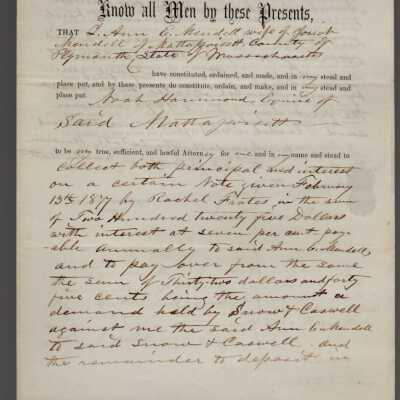 Know all Men by these Presents,
THAT I, Ann C. Mendell wife of Josiah
Mendell of Mattapoisett County of
Plymouth State of Massachusetts
have constituted, ordained, and made, and in my stead and
place put, and by these presents do constitute, ordain, and make, and in my stead and
place put Noah Hammond Esquire of
Said Mattapoisett
to be my true, sufficient, and lawful Attorney for me and in my name and stead to
collect both principal and interest
on a certain Note given February
13th 1877 by Rachel Frates in the sum
of Two Hundred twenty five Dollars
with interest at seven per cent pay-
able annually to said Ann C. Mendell,
and to pay over from the same
the sum of Thirty-two dollars and forty
five cents being the amount a
demand held by Snow & Caswell
against me the said Ann C. Mendell
to said Snow & Caswell and
the remainder to deposit in